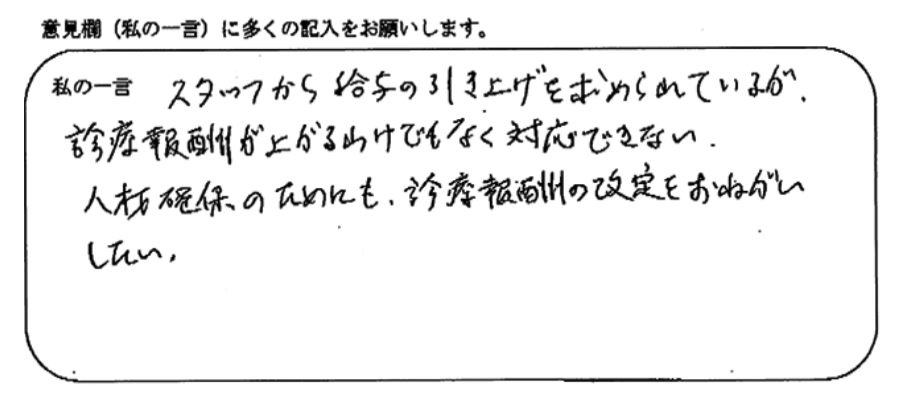 意見欄（私の一言）に多くの記入をお願いします。
私の一言 スタッフから給与の引き上げを求められているが、
診療報酬が上がるわけでもなく対応できない．
人材確保のためにも、診療報酬の改定をおねがい
したい．